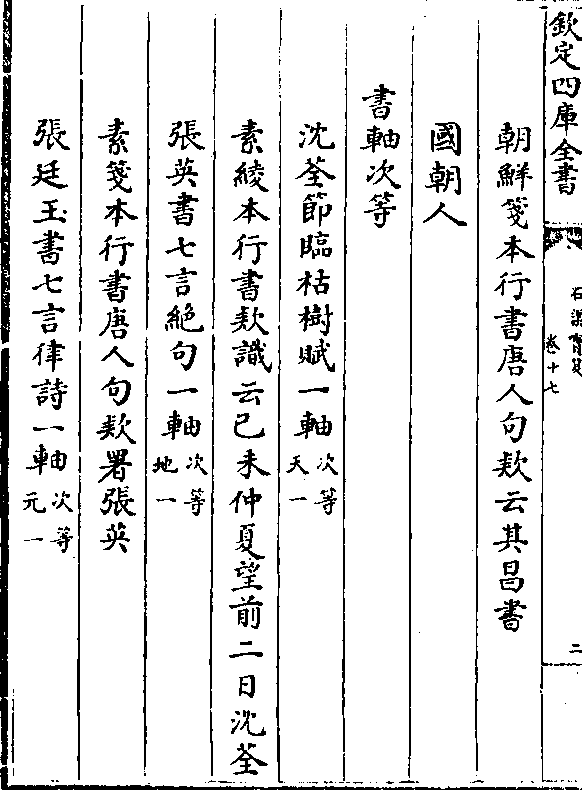 欽定四庫全書
石渠寶笈
卷十七
二
朝鮮箋本行書唐人句欵云其昌書
國朝人
書軸次等
沈荃節臨枯樹賦一軸 次等 天一
素綾本行書欵識云己未仲夏望前二日沈荃
張英書七言絶句一軸 次等 地一
素箋本行書唐人句欵署張英
張廷玉書七言律詩一軸 次等 元一